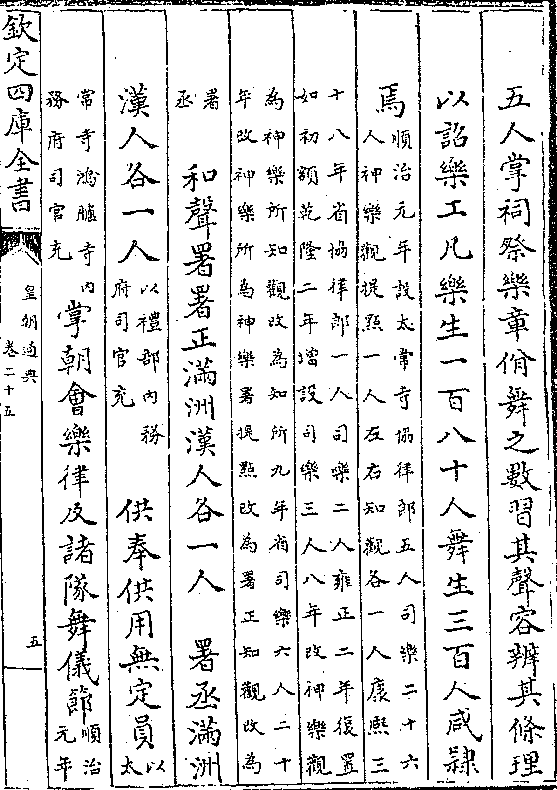 五人掌祠祭樂章佾舞之數習其聲容辨其條理
以詔樂工凡樂生一百八十人舞生三百人咸隸
焉
順治元年設太常寺協律郎五人司樂二十六
人神樂觀提點一人左右知觀各一人康熙三
十八年省協律郎一人司樂二人雍正二年復置
如初額乾隆二年增設司樂三人八年改神樂觀
為神樂所知觀改為知所九年省司樂六人二十
年改神樂所為神樂署提點改為署正知觀改為
署
丞
和聲署署正滿洲漢人各一人 署丞滿洲
漢人各一人
以禮部內務
府司官充
供奉供用無定員
以
太
常寺鴻臚寺內
務府司官充
掌朝會樂律及諸隊舞儀節
順治
元年
欽定四庫全書
皇朝通典
卷二十五
五